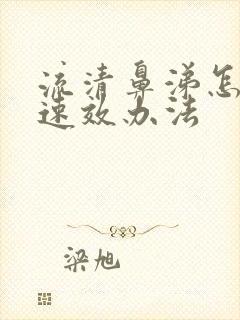 流清鼻涕怎
速效办法
梁旭